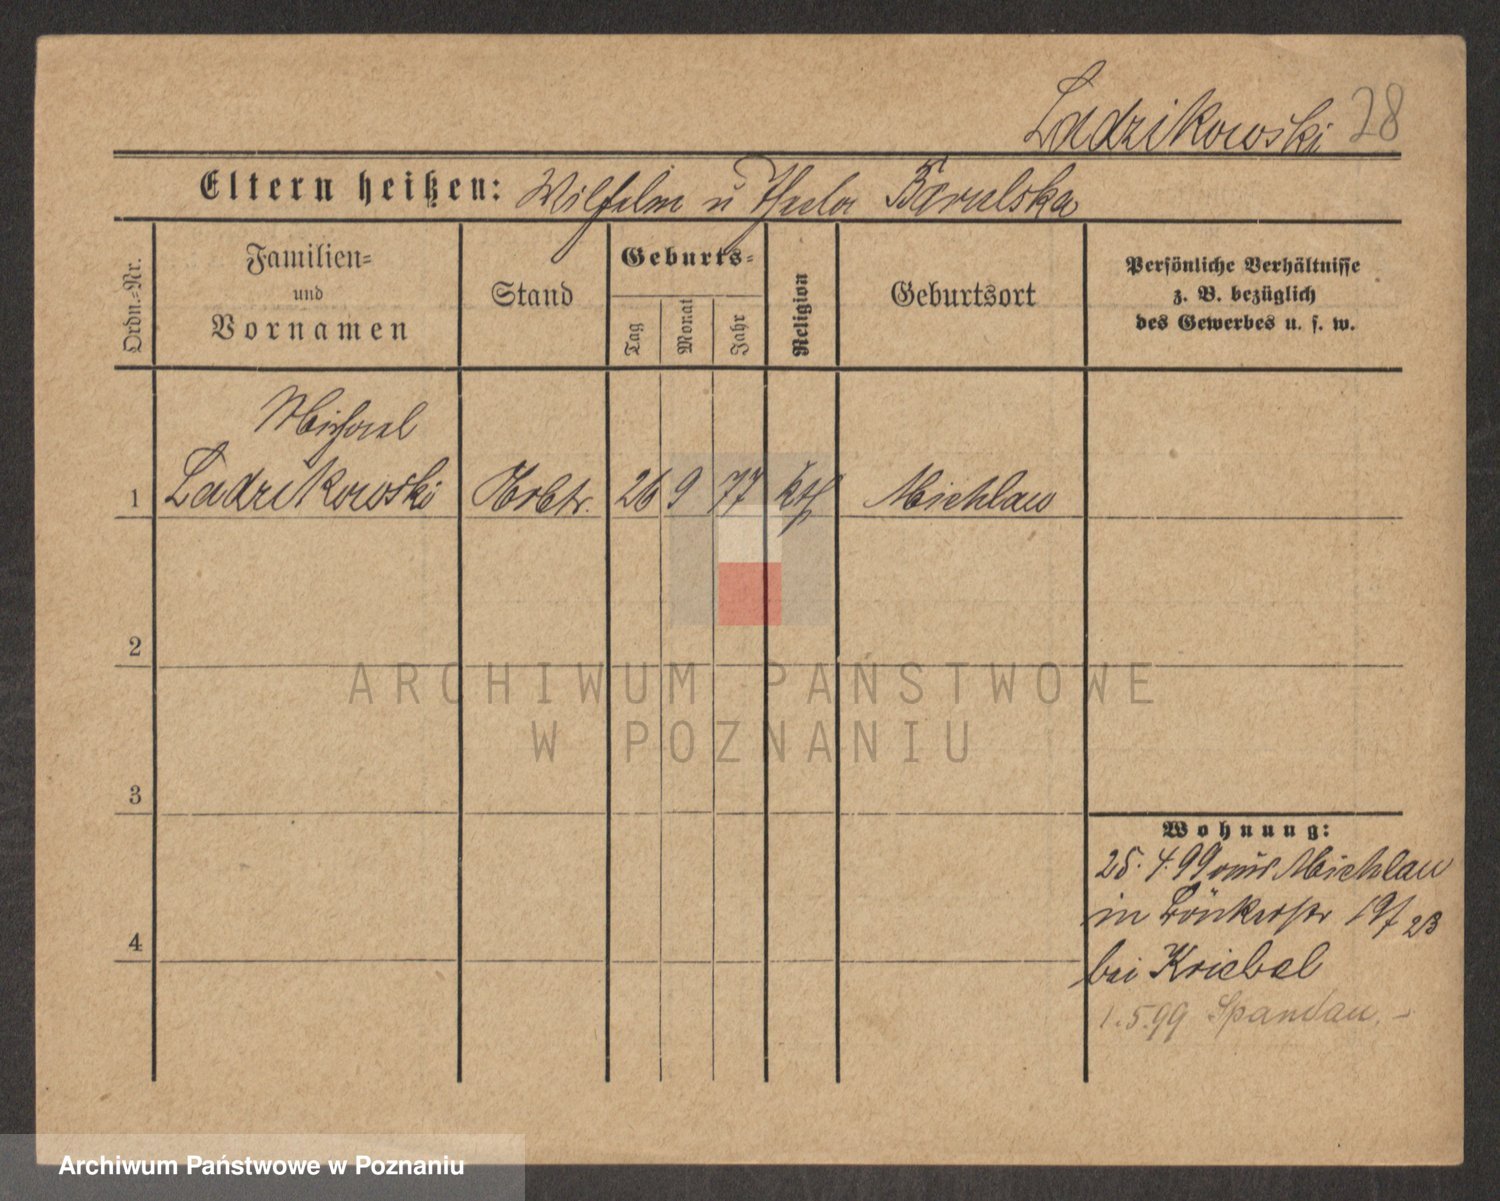 Ladzikowski 28
Eltern heißen: Wilhelm u Thecla
Ordn.-Nr.
Familien-
und
Vornamen
Stand
Geburts-
Tag
Monat
Jahr
Religion
Geburtsort
Persönliche Verhältnisse
z. B. bezüglich
des Gewerbes u. s. w.
Michael
1 Ladzikowski Arbtr. 26 9 77 kth Michlau
2
ARCHIWUM PAŃSTWOWE
W POZNANIU
3
Wohnung:
25. 4. 99 aus Michlau
in
4
bei Kriebel
1.5.99 Spandau. –
Archiwum Państwowe w Poznaniu